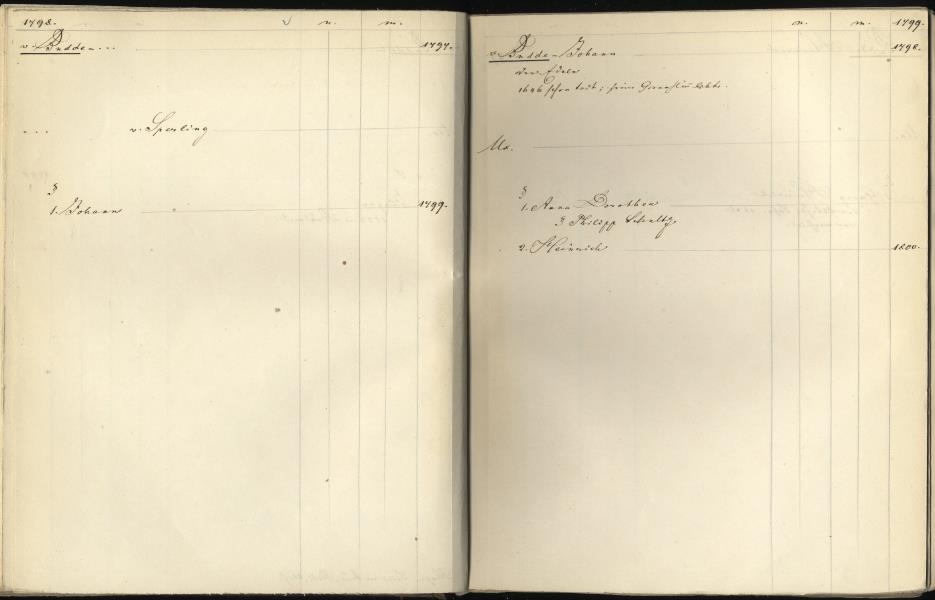 1798. n. m.
v. Budde ... 1797.
... v. Sperling
§
1. Johann 1799.
n. m. 1799.
v. Budde - Johann 1798.
der Edele
1646 schon todt; seine lebte.
Ux.
§
1. Anna Dorothea
§ Philipp Schultz
2. Heinrich 1800.